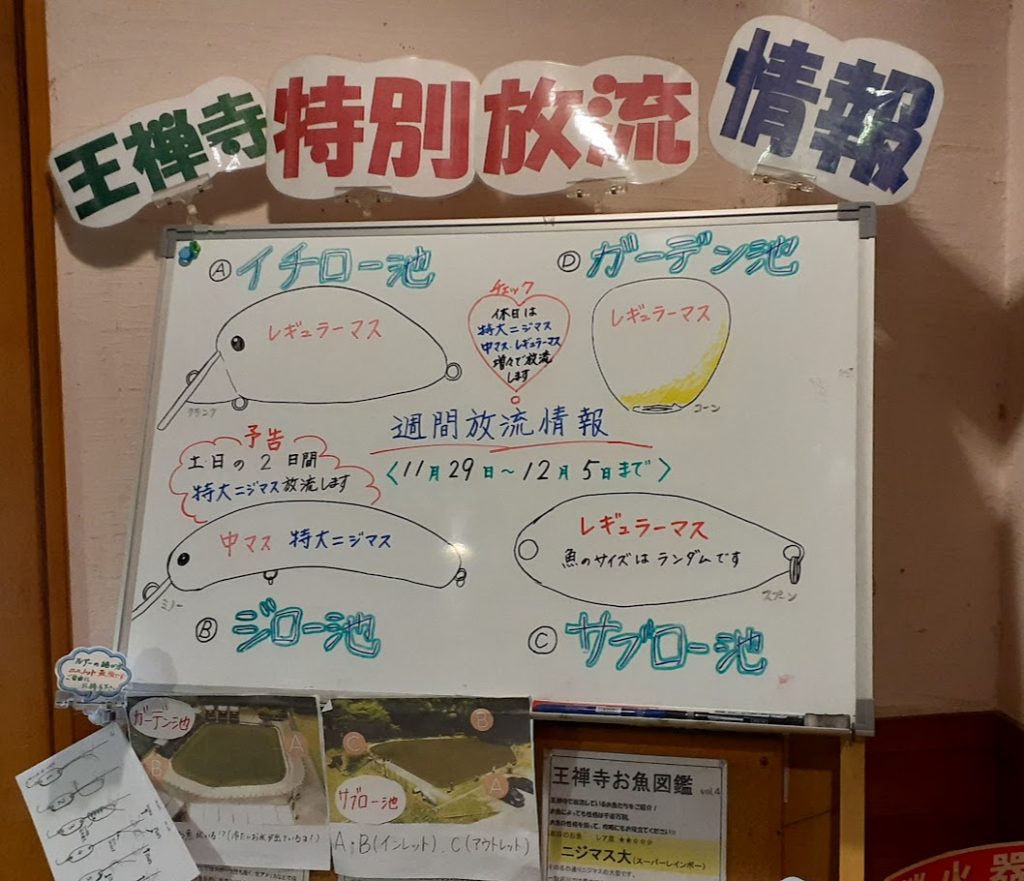 王禅寺 特別放流 情報
Ⓐイチロー池
レギュラーマス
クランク
チェック
休日は
特大ニジマス
中マス・レギュラーマス
増々で放流
します
Ⓓガーデン池
レギュラーマス
コーン
週間放流情報
〈11月29日〜12月5日まで〉
予告
土日の2日間
特大ニジマス放流します
中マス 特大ニジマス
ミノー
Ⓑジロー池
レギュラーマス
魚のサイズはランダムです
スプーン
Ⓒサブロー池
ガーデン池
A
B
B
C
A
サブロー池
A,B(インレット).C(アウトレット)
王禅寺お魚図鑑 vol.4
ニジマス大(スーパーレインボー)
火器